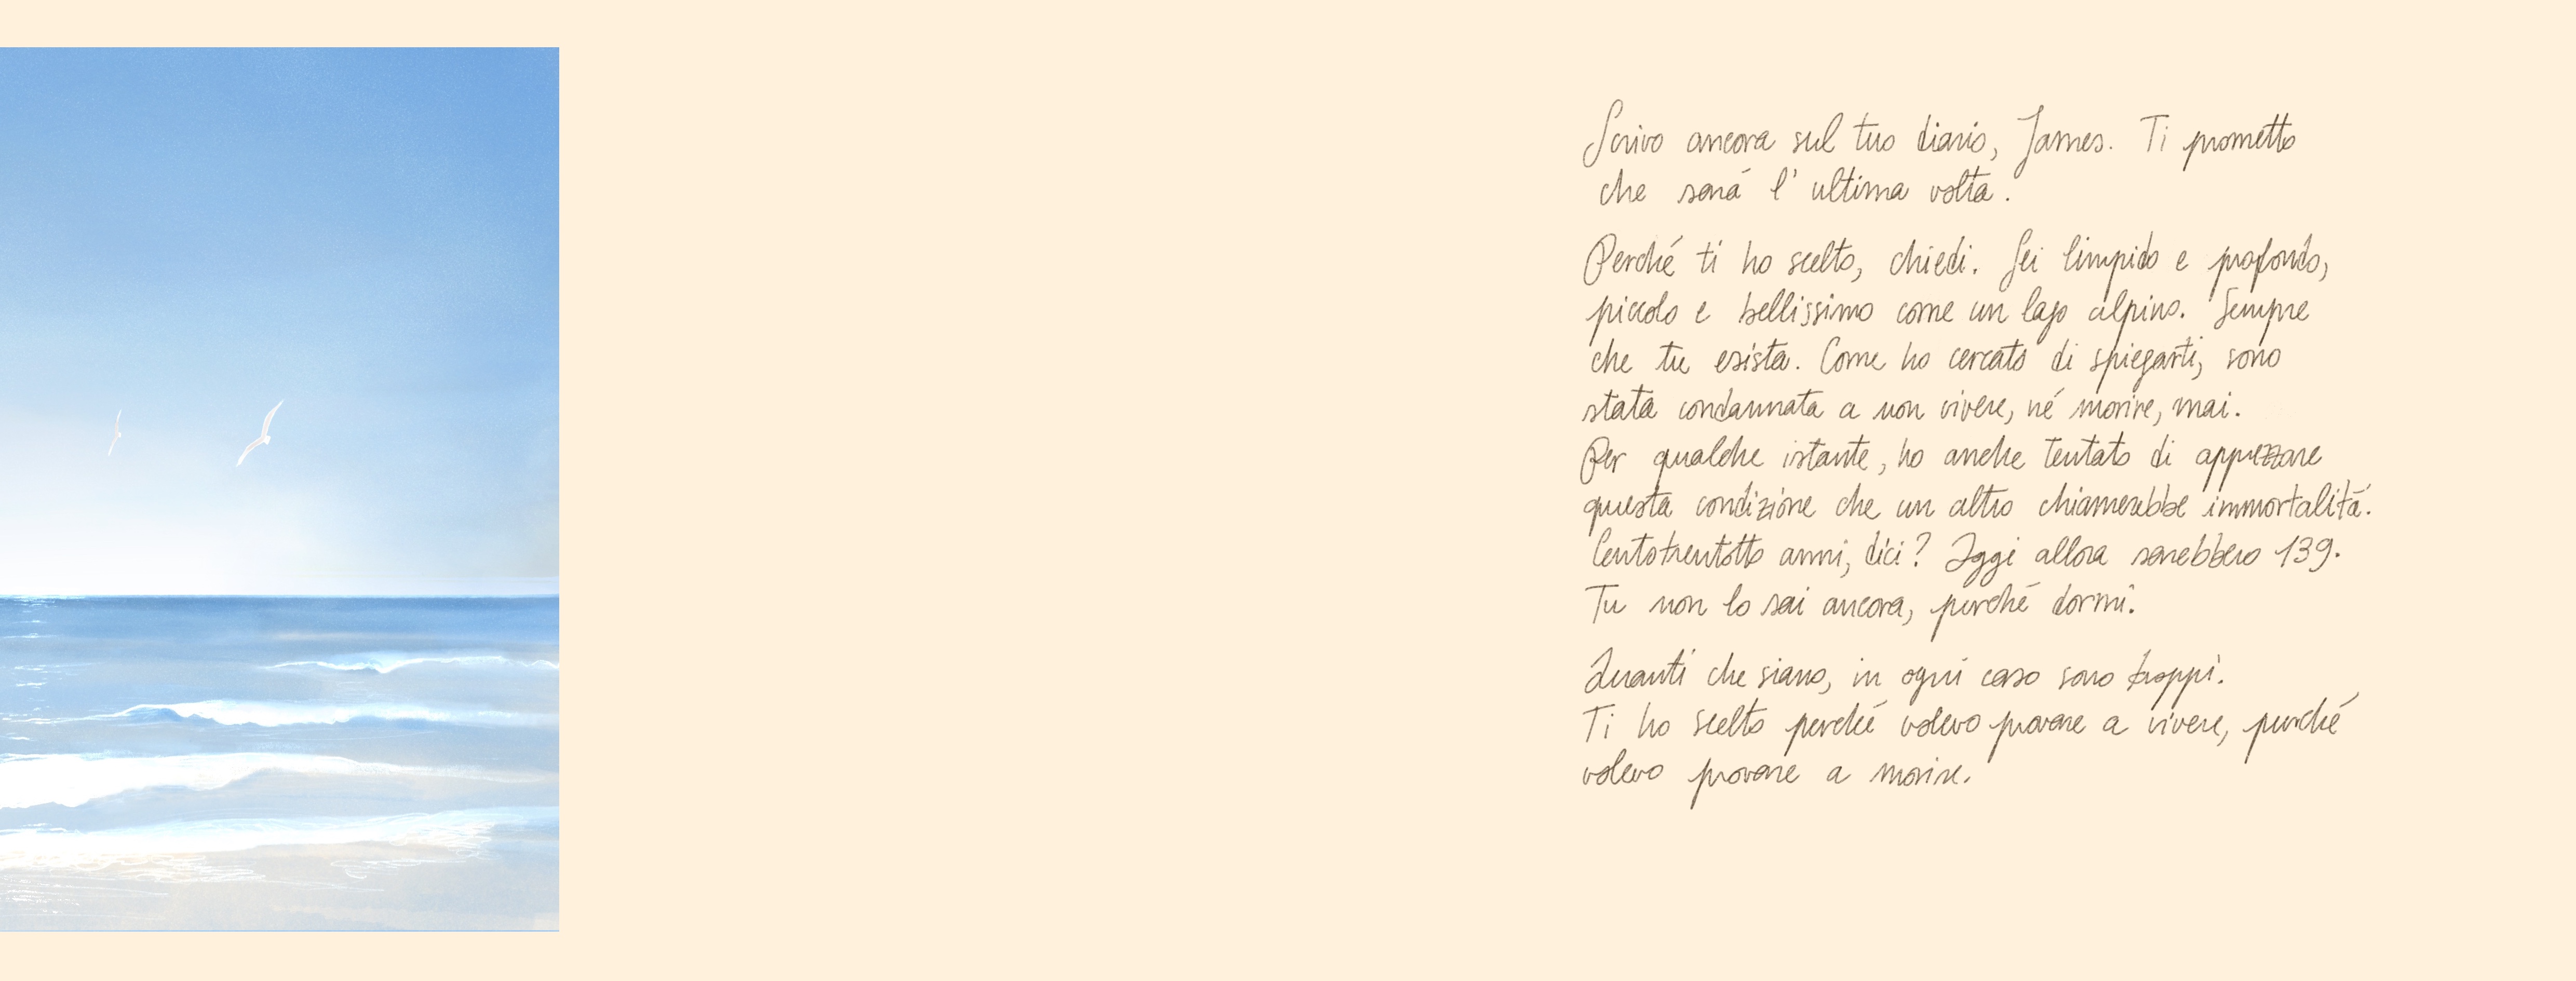 Scrivo ancora sul tuo diario, James. Ti prometto
che sará l'ultima volta.
Perché ti ho scelto, chiedi. Sei limpido e profondo,
piccolo e bellissimo come un lago alpino. Sempre
che tu esista. Come ho cercato di spiegarti, sono
stata condannata a non vivere, né morire, mai.
Per qualche istante, ho anche tentato di apprezzare
questa condizione che un altro chiamerebbe immortalitá.
Centotrentotto anni, dici? Oggi allora sarebbero 139.
Tu non lo sai ancora, perché dormi.
Quanti che siano, in ogni caso sono troppi.
Ti ho scelto perché volevo provare a vivere, perché
volevo provare a morire.